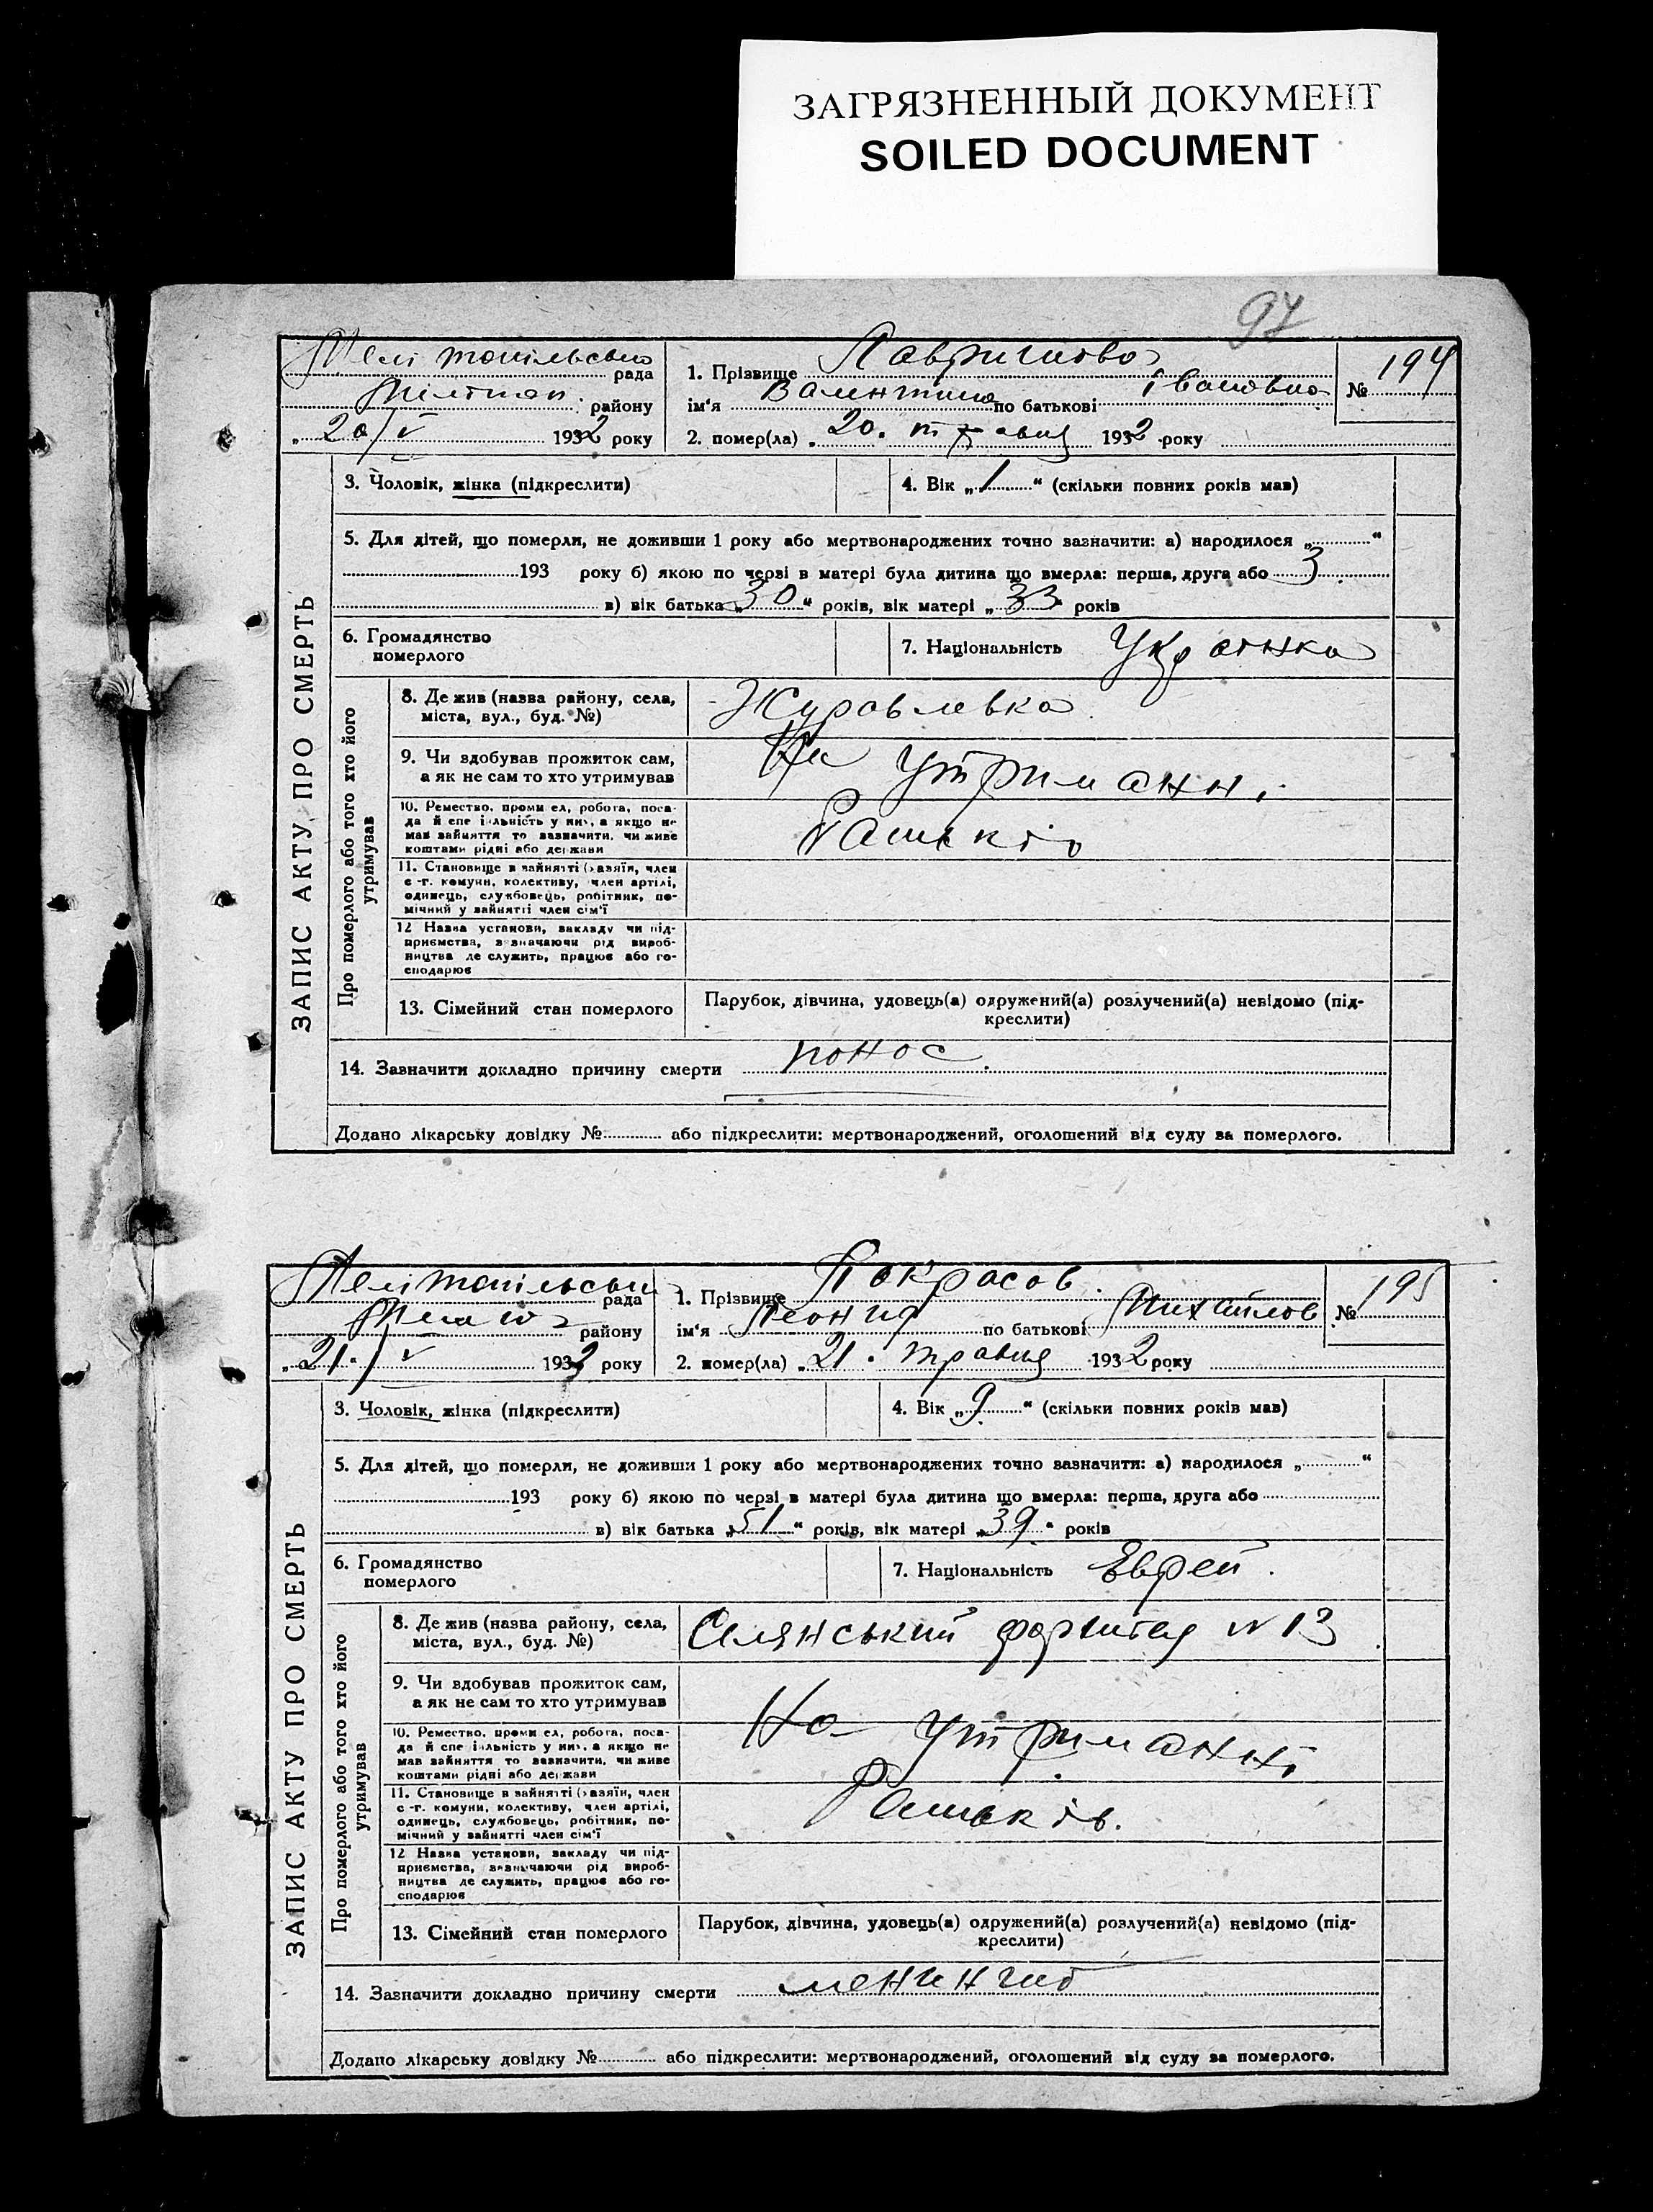 ЗАГРЯЗНЕННЫЙ ДОКУМЕНТ
SOILED DOCUMENT
97
Мелітопільська
рада
району
„ 20/V 1932 року
1. Прізвище
ім'я Валентина по батькові Івановна
2. помер(ла) „ 20. травня 1932 року
№ 194
ЗАПИС АКТУ ПРО СМЕРТЬ
3. Чоловік, жінка (підкреслити)
4. Вік „ 1 “ (скільки повних років мав)
5. Для дітей, що померли, не доживши 1 року або мертвонароджених точно зазначити: а) народилося „ “
193 року б) якою по черзі в матері була дитина що вмерла: перша, друга або 3
в) вік батька „ 30 “ років, вік матері „ 33 “ років
6. Громадянство
померлого
7. Національність Українка
Про померлого або того хто його
утримував
8. Де жив (назва району, села,
міста, вул., буд. №)
Журавлевка
9. Чи здобував прожиток сам,
а як не сам то хто утримував
На утриманні
10. Ремество, промисел, робота, поса-
да й спеціяльність у них, а якщо не
мав зайняття то зазначити, чи живе
коштами рідні або держави
11. Становище в зайнятті (хазяїн, член
с.-г. комуни, колективу, член артілі,
одинець, службовець, робітник, по-
мічний у зайнятті член сім'ї
12 Назва установи, закладу чи під-
приємства, зазначаючи рід вироб-
ництва де служить, працює або го-
сподарює
13. Сімейний стан померлого
Парубок, дівчина, удовець(а) одружений(а) розлучений(а) невідомо (під-
креслити)
14. Зазначити докладно причину смерти понос.
Додано лікарську довідку № або підкреслити: мертвонароджений, оголошений від суду за померлого.
Мелітопільська
рада
району
„ 21/V 1932 року
1. Прізвище Покрасов.
ім'я Леонид по батькові Михайлов
2. помер(ла) „ 21. травня 1932 року
№ 195
ЗАПИС АКТУ ПРО СМЕРТЬ
3. Чоловік, жінка (підкреслити)
4. Вік „ 9 “ (скільки повних років мав)
5. Для дітей, що померли, не доживши 1 року або мертвонароджених точно зазначити: а) народилося „ “
193 року б) якою по черзі в матері була дитина що вмерла: перша, друга або
в) вік батька „ 51 “ років, вік матері „ 39 “ років
6. Громадянство
померлого
7. Національність Еврей.
Про померлого або того хто його
утримував
8. Де жив (назва району, села,
міста, вул., буд. №)
№ 13
9. Чи здобував прожиток сам,
а як не сам то хто утримував
На утриманні
10. Ремество, промисел, робота, поса-
да й спеціяльність у них, а якщо не
мав зайняття то зазначити, чи живе
коштами рідні або держави
11. Становище в зайнятті (хазяїн, член
с.-г. комуни, колективу, член артілі,
одинець, службовець, робітник, по-
мічний у зайнятті член сім'ї
12 Назва установи, закладу чи під-
приємства, зазначаючи рід вироб-
ництва де служить, працює або го-
сподарює
13. Сімейний стан померлого
Парубок, дівчина, удовець(а) одружений(а) розлучений(а) невідомо (під-
креслити)
14. Зазначити докладно причину смерти менингит
Додано лікарську довідку № або підкреслити: мертвонароджений, оголошений від суду за померлого.